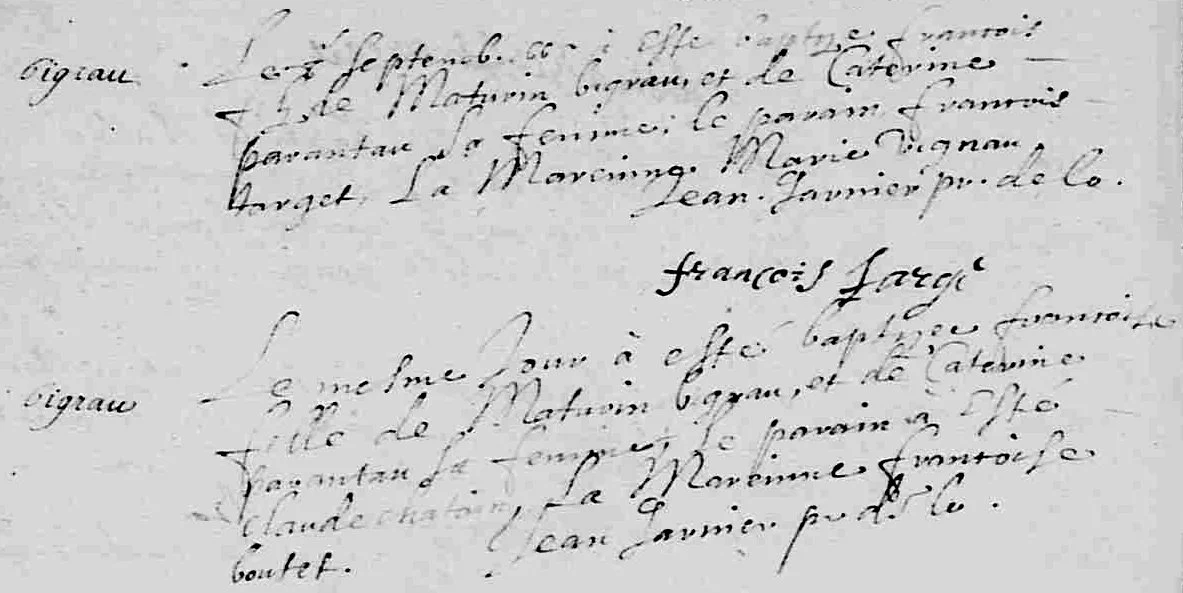 bigrau
Le septemb. 66 à Esté baptize francois
filz de Maturin bigrau, et de Caterine
parantau Sa femme, le parain francois
target, La Mareinne Marie vignau
Jean Garnier pr. de lo.
françois Targé
bigrau
Le mesme Jour à esté baptizee francoise
fille de Maturin bigrau, et de Caterine
parantau Sa femme, Le parain à Esté
claude chatain, La Mareinne francoise
boutet. Jean Garnier pr. de lo.